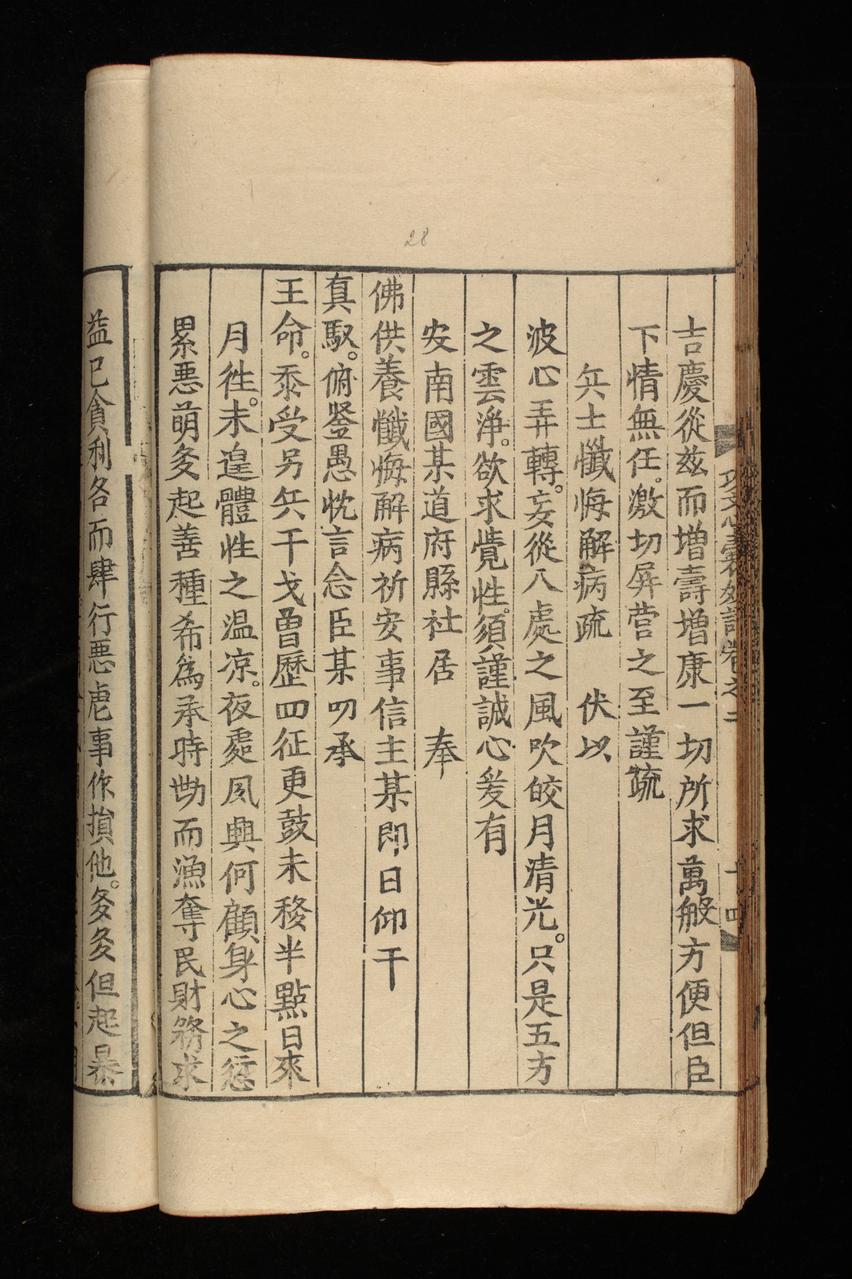 28
吉慶從兹而增壽增康一切所求萬般方便但臣
下情無任。激切屏营之至謹疏
兵士懺悔解病疏 伏以
波心弄轉。妄從八處之風吹皎月清光。只是五方
之雲淨。欲求覺性。須謹誠心爰有
安南國某道府縣社居 奉
佛供養懺悔解病祈安事信主某即日仰干
真馭。俯鉴愚忱言念臣某叨承
王命。忝受另兵干戈曽歷四征更鼓未移半點日來
月徃。未遑體性之温凉。夜處夙興何顧身心之愆
累悪萌多起善種希為承時势而漁奪民財務求
益已貪利各而肆行悪虐事作損他。多多但起暴
卷之二
十四